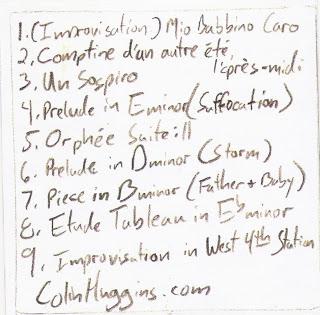 1. (Improvisation) Mio Babbino Caro
2. Comptine d'un autre été,
l'après-midi
3. Un Sospiro
4. Prelude in E minor (Suffocation)
5. Orphée Suite: II
6. Prelude in D minor (Storm)
7. Piese in B minor (Father + Baby)
8. Etude Tableau in E♭ minor
9. Improvisation in West 4th Station
ColinHuggins.com